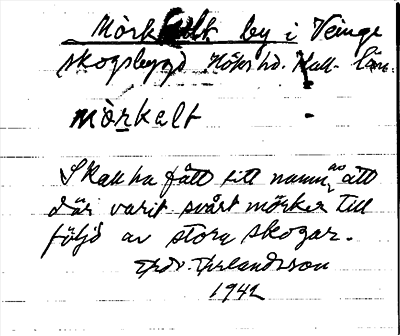 Mörkhult by i Veinge
skogsbygd Höks hd. Hall. län.
mòrkalt
Skall ha fått sitt namn av att
där varit svårt mörker till
följd av stora skogar.
Erlandsson
1942